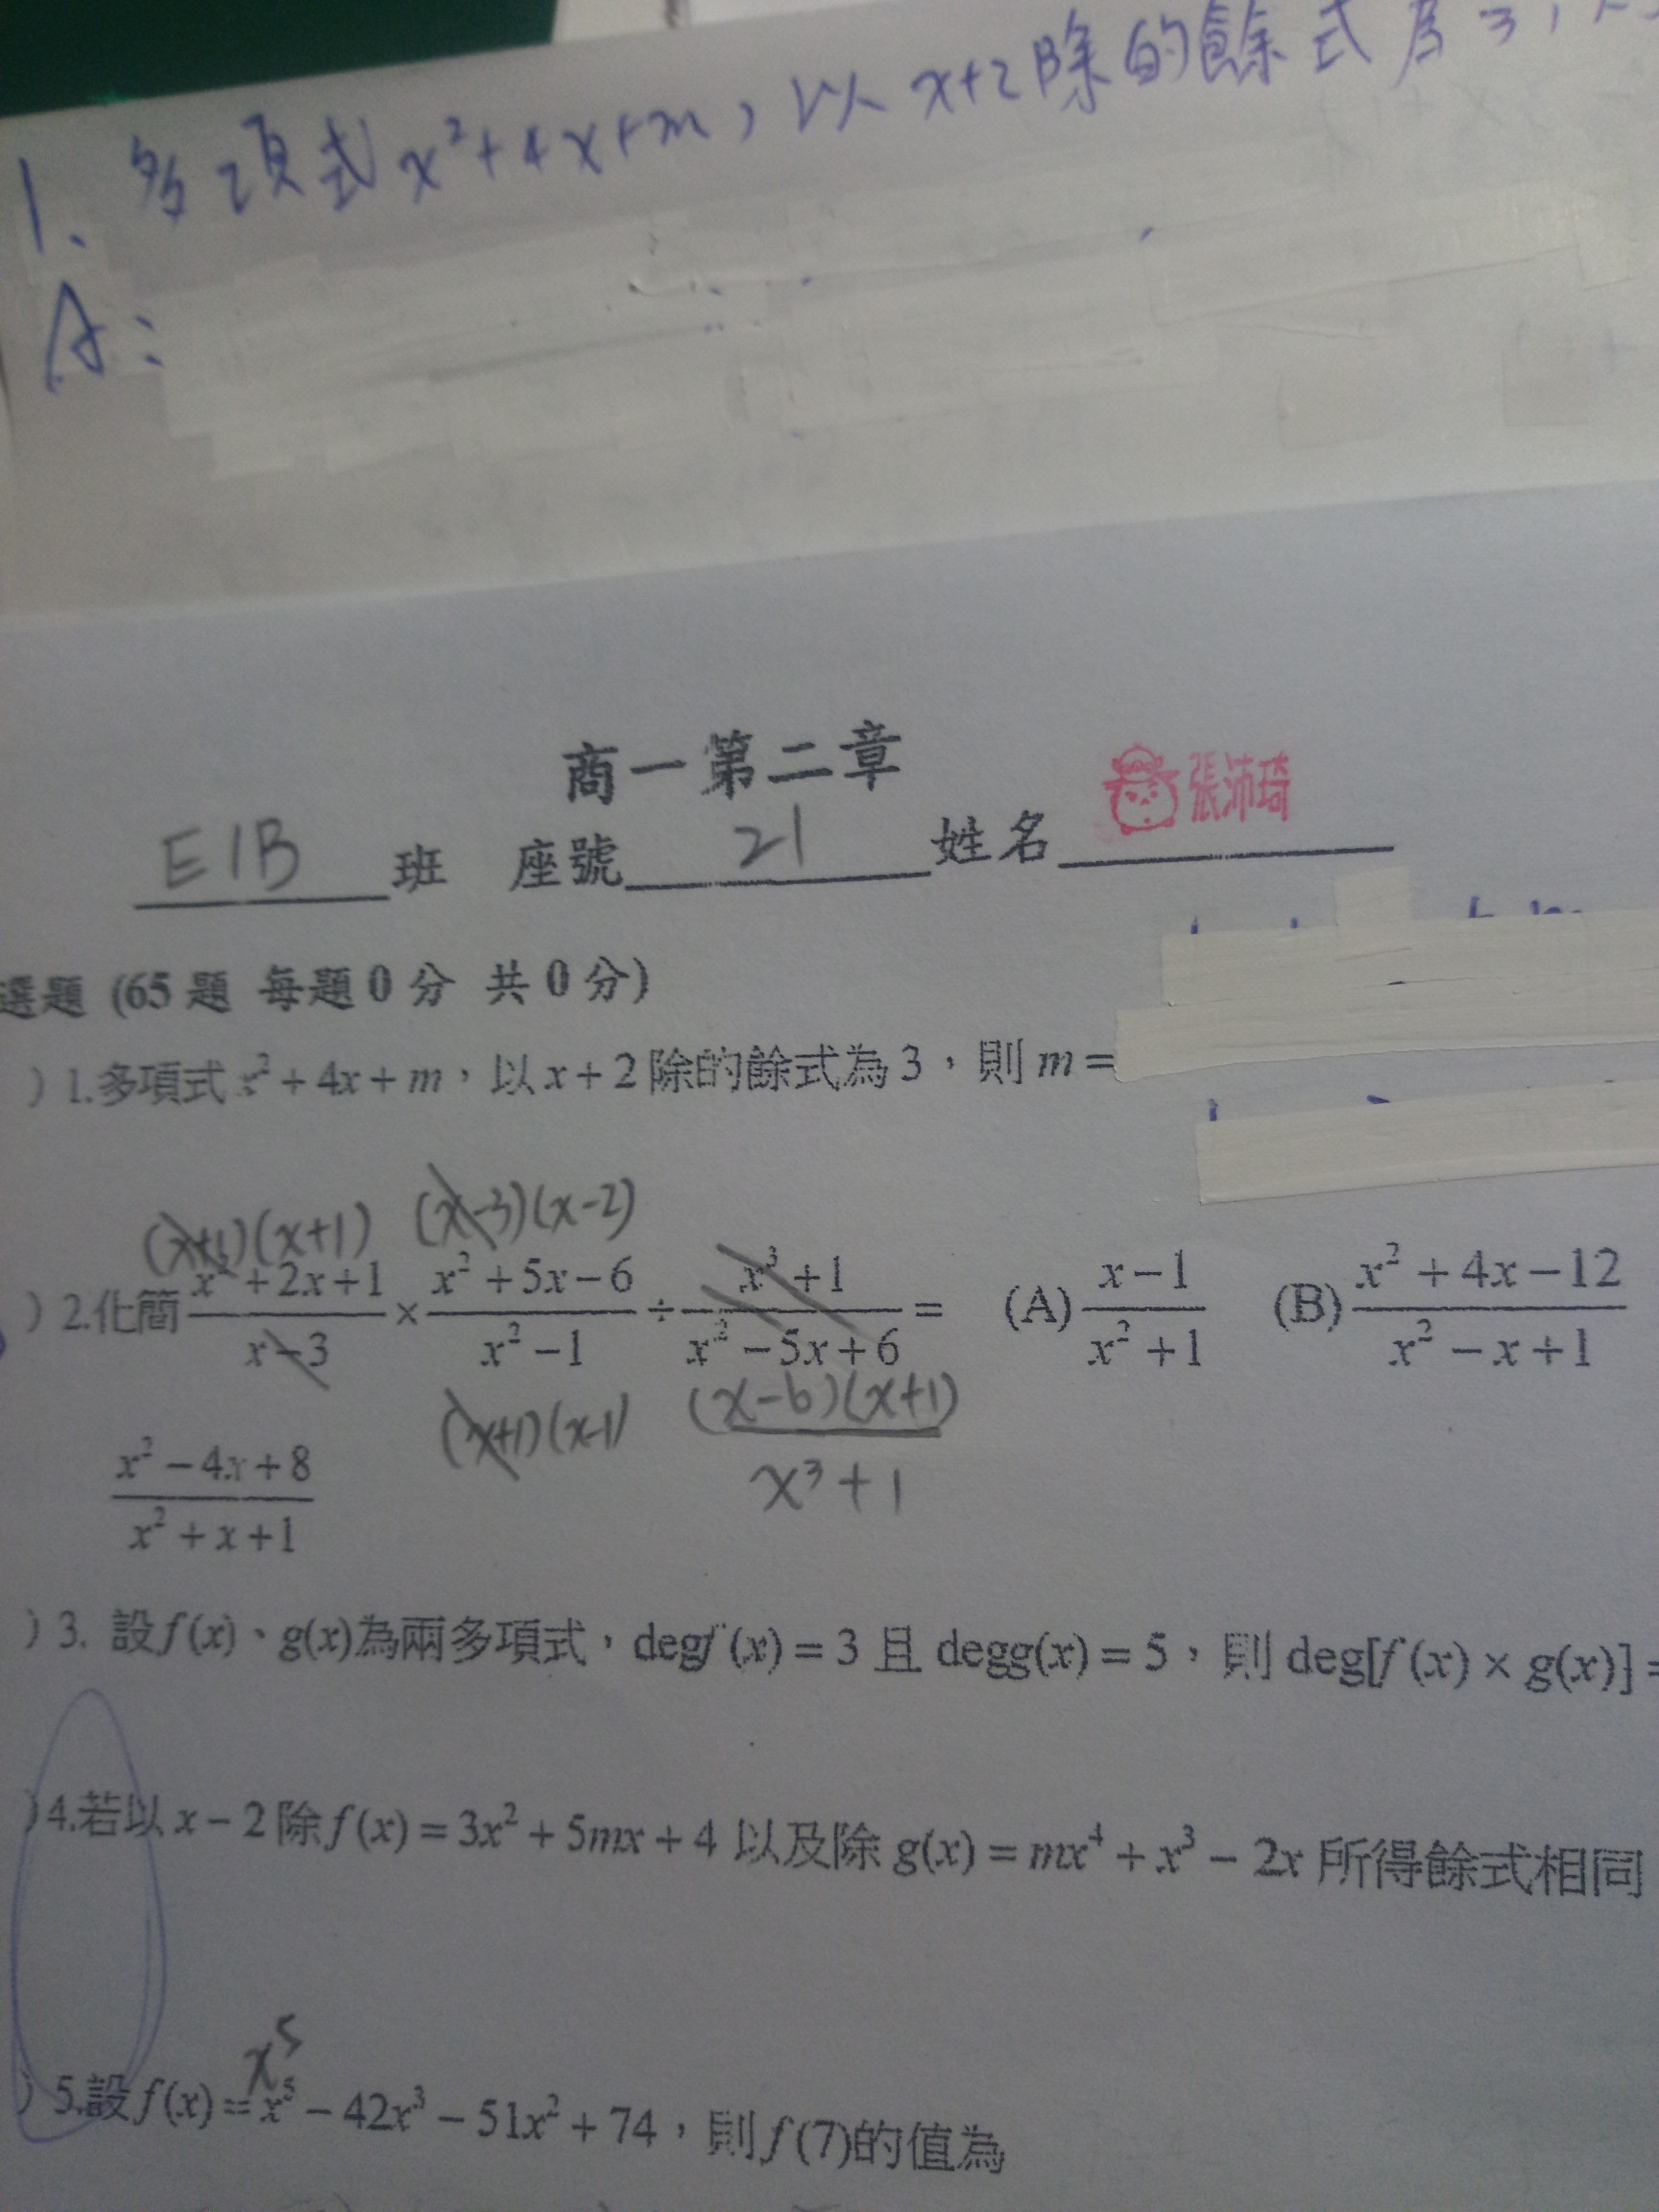 1. 多項式 x²+4x+m，以 x+2 除的餘式為 3，
A:
商一第二章
E1B 班 座號 21 姓名 張沛琦
選題 (65 題 每題 0 分 共 0 分)
) 1.多項式 x² + 4x + m，以 x + 2 除的餘式為 3，則 m =
(x+1)(x+1) (x-3)(x-2)
) 2.化簡 (x² + 2x + 1)/(x - 3) × (x² + 5x - 6)/(x² - 1) ÷ (x³ + 1)/(x² - 5x + 6) = (A) (x - 1)/(x² + 1) (B) (x² + 4x - 12)/(x² - x + 1)
(x+1)(x-1) (x-6)(x+1)/(x³+1)
(x² - 4x + 8)/(x² + x + 1)
) 3. 設 f(x)、g(x)為兩多項式，degf(x) = 3 且 degg(x) = 5，則 deg[f(x) × g(x)] =
)4.若以 x - 2 除 f(x) = 3x² + 5mx + 4 以及除 g(x) = mx⁴ + x³ - 2x 所得餘式相同
x⁵
) 5.設 f(x) = x⁵ - 42x³ - 51x² + 74，則 f(7)的值為